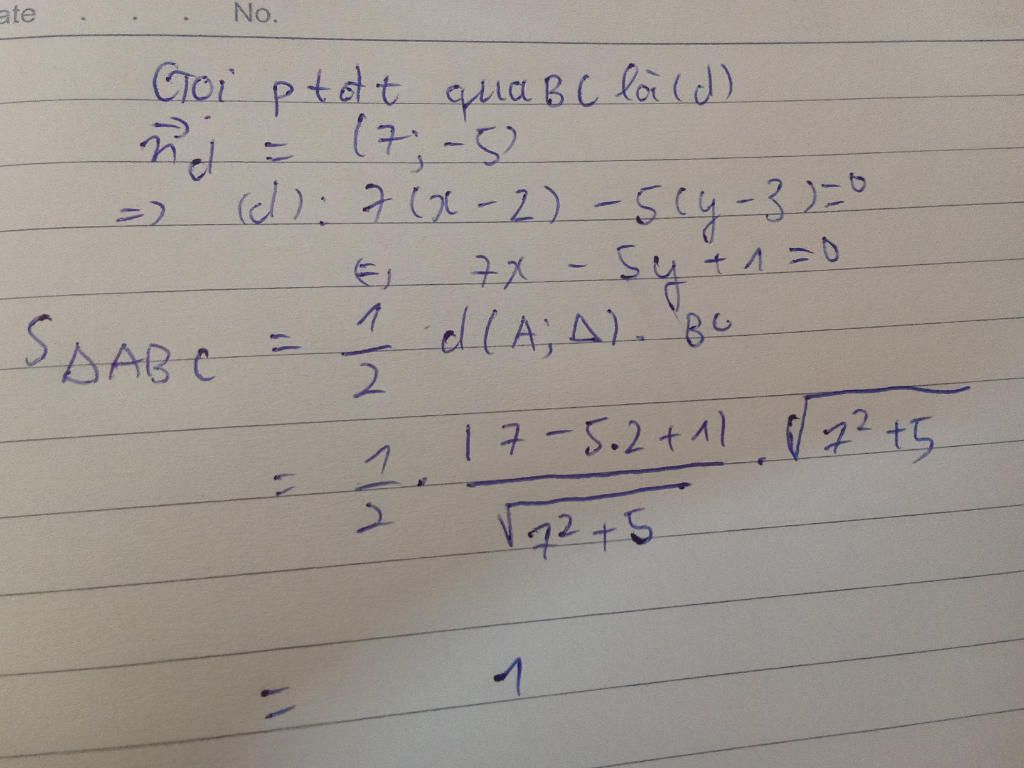 ate . . . No.
Gọi ptđt qua BC là (d)
n⃗d = (7; -5)
=> (d): 7(x - 2) - 5(y - 3) = 0
⇔ 7x - 5y + 1 = 0
SΔABC = 1/2 d(A; Δ). BC
= 1/2 . |7 - 5.2 + 1| / √(7² + 5) . √(7² + 5)
= 1